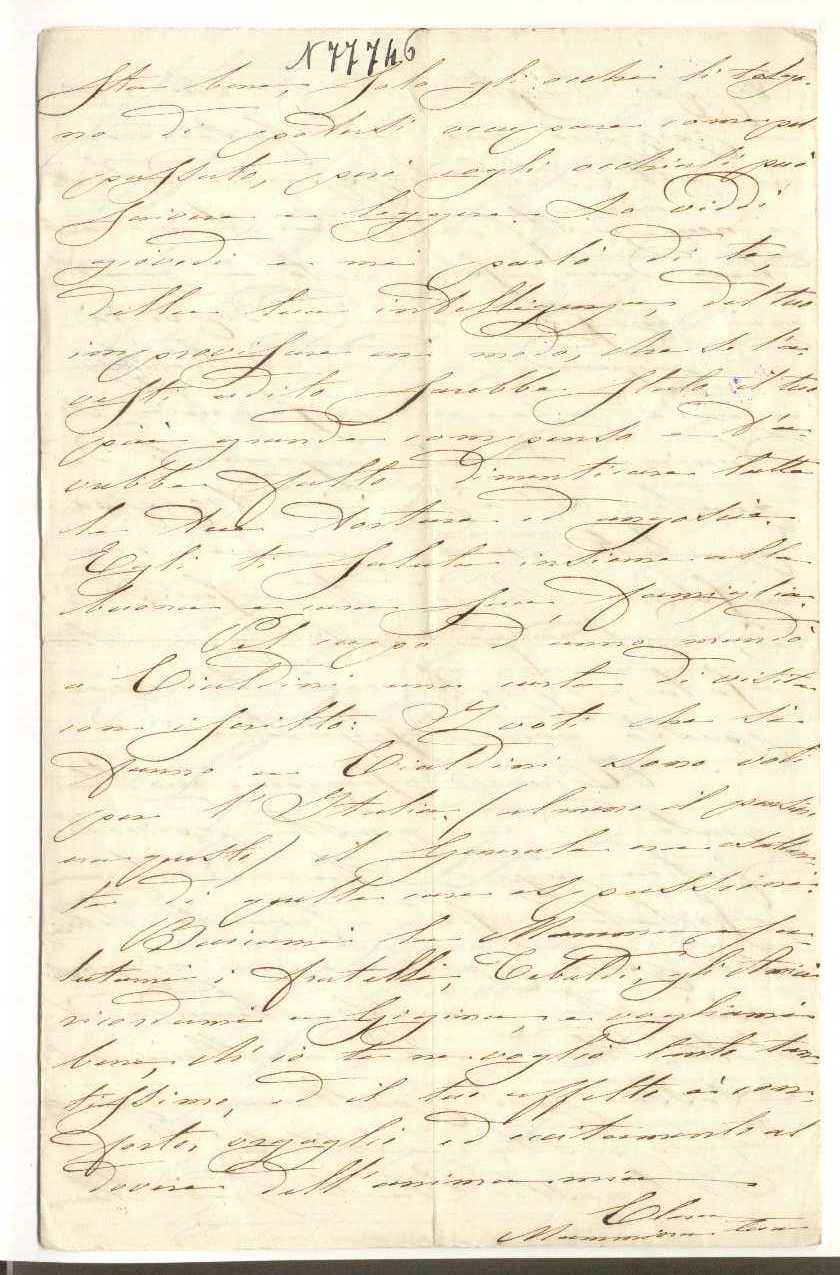 N 77746
Sta bene, solo gli occhi li tolgo-
no di potersi occupare come pel
passato, però cogli occhiali può
scrivere e leggere. Lo viddi
giovedì e mi parlò di te,
della tua intelligenza, del tuo
improvisare in modo, che se l'a-
vesti udito sarebbe stato il tuo
più grande compenso e t'a-
vrebbe fatto dimenticare tutte
le tue torture ed angoscie.
Egli ti saluta insieme alla
buona e cara sua famiglia.
Pel capo d'anno mandò
a Cialdini una carta di visita
con iscritto: I voti che si
fanno a Cialdini sono voti
per l'Italia. (almeno il
era questo) il Generale era
te di quelle care espressioni.
Baciami la Mamma sa-
lutami i fratelli, Tebaldi, gli Amici
ricordami a Gigina, e vogliami
bene, ch'io te ne voglio tanto tan-
tissimo, ed il tuo affetto è con-
forto, orgoglio ed eccitamento al
dovere dell'anima mia
Clara
Mammina tua